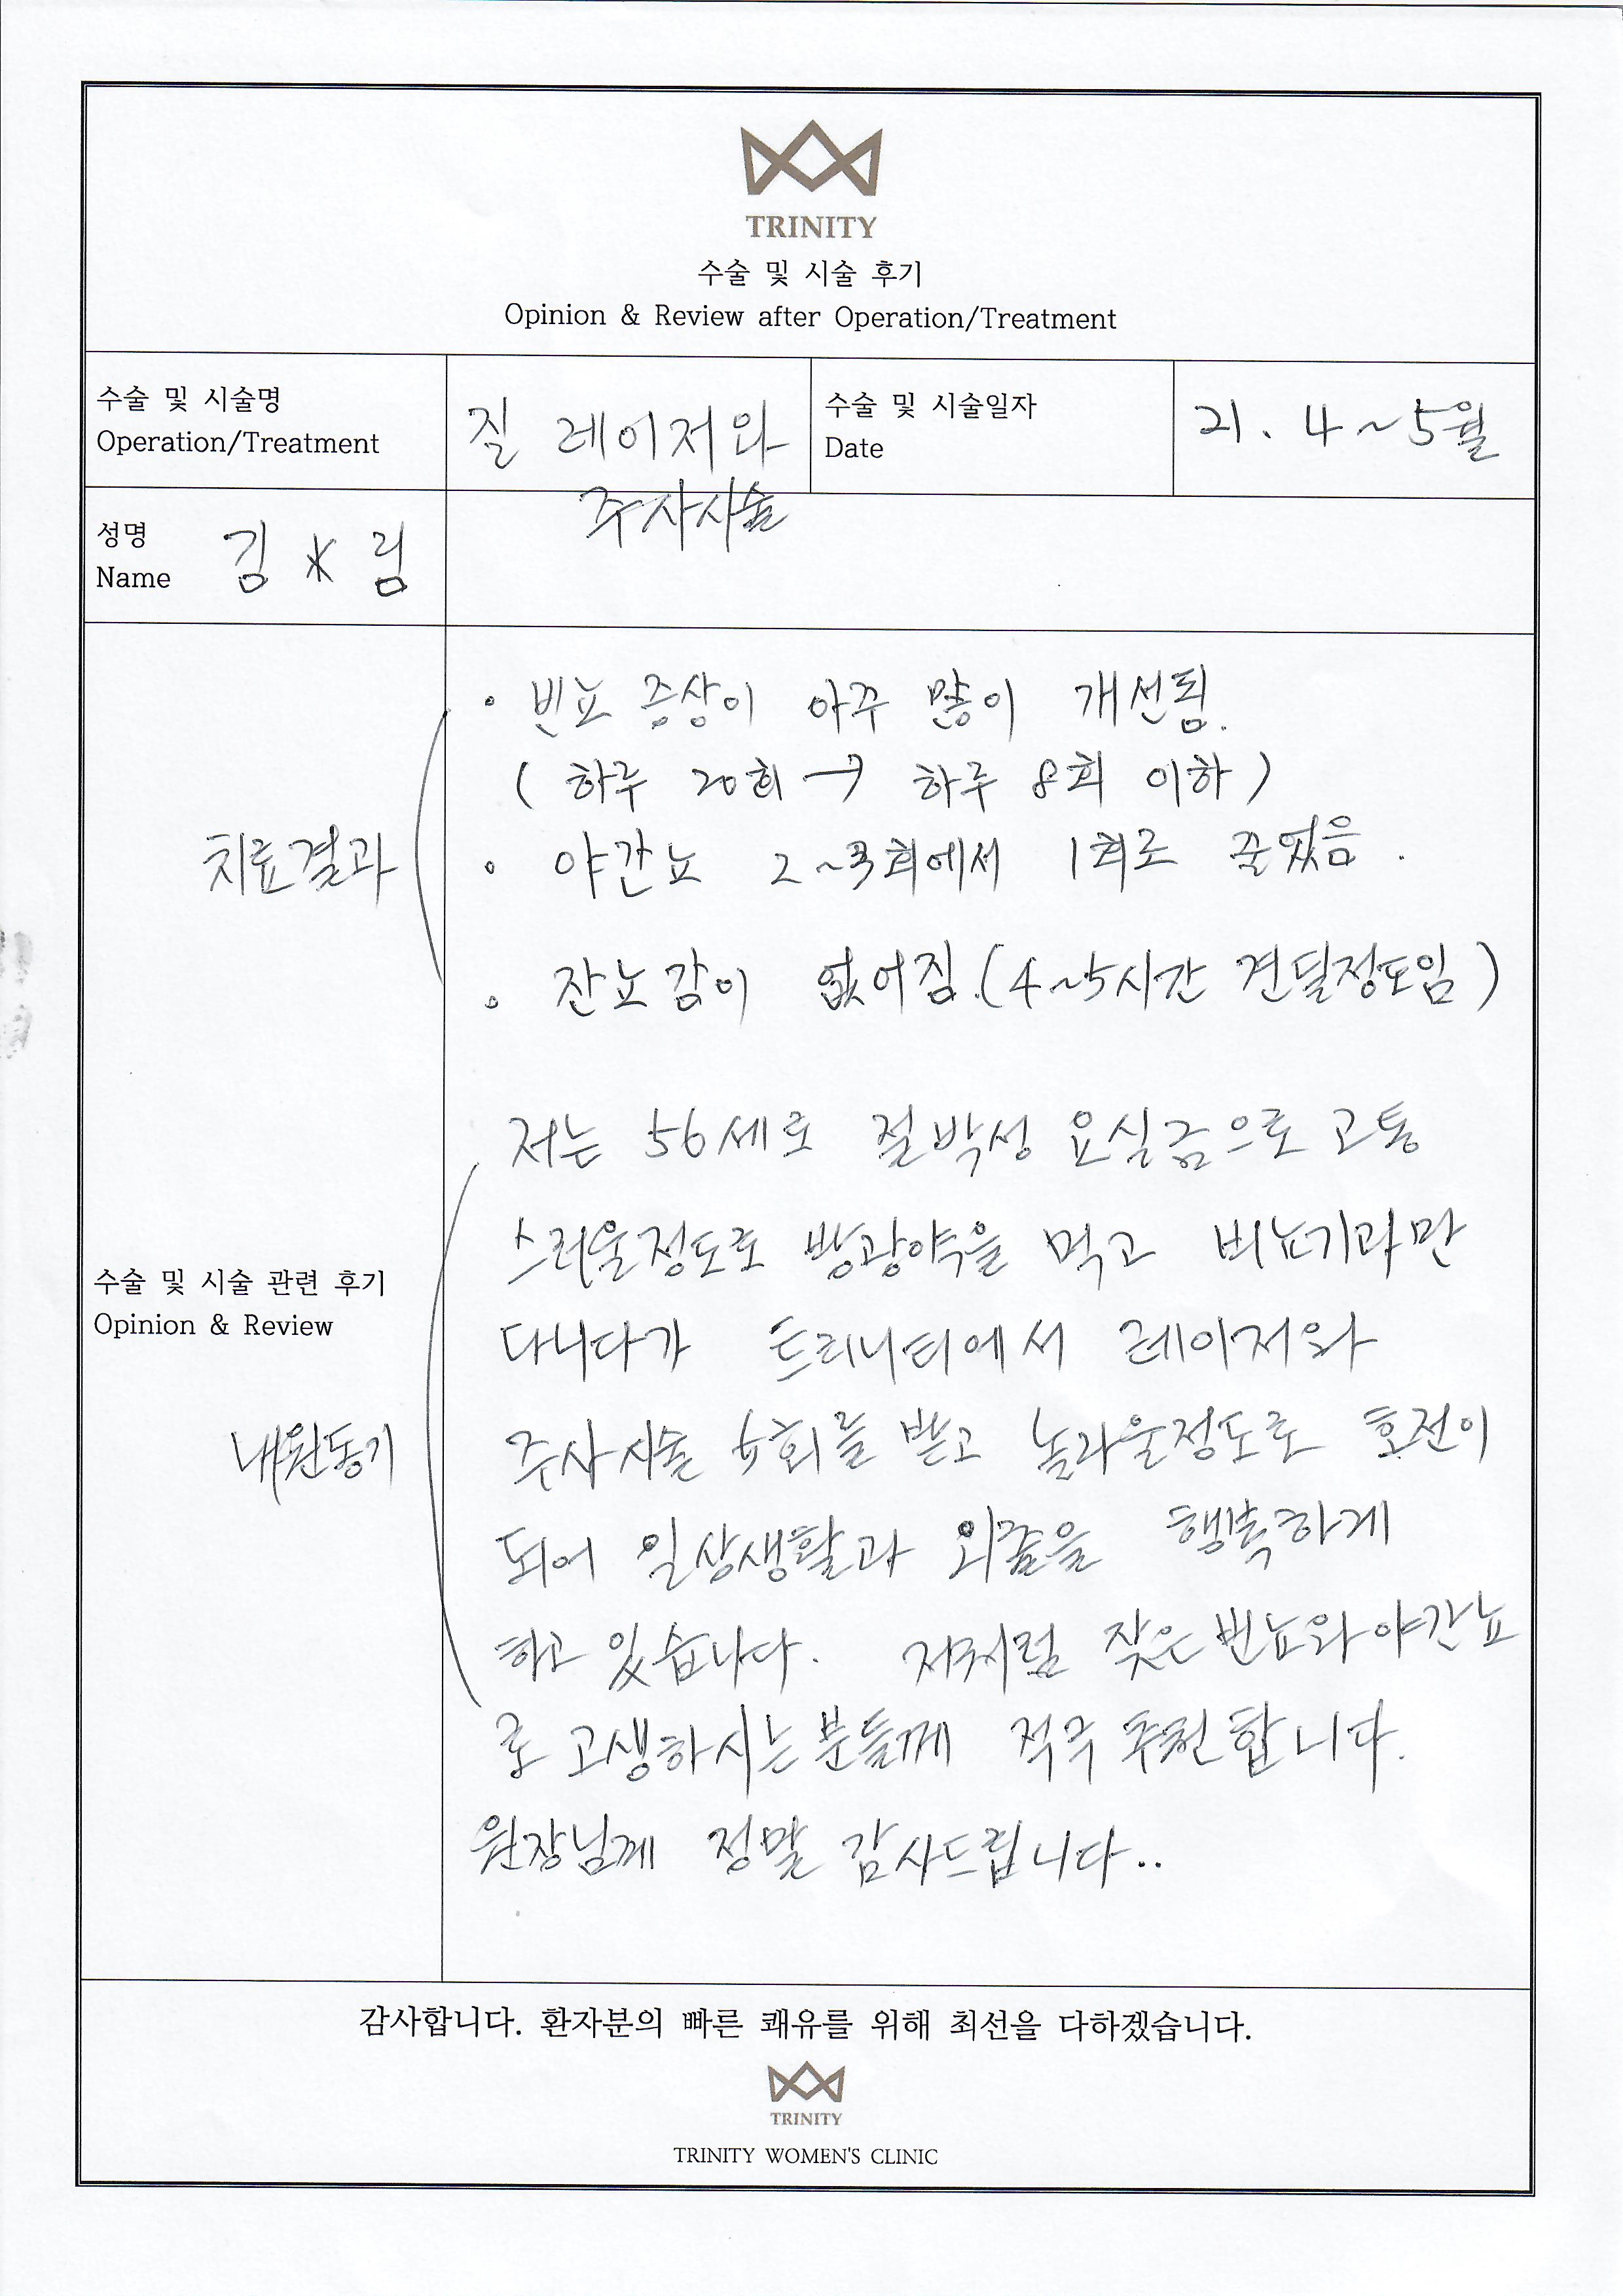 TRINITY
수술 및 시술 후기
Opinion & Review after Operation/Treatment
수술 및 시술명
Operation/Treatment
질 레이저와
주사시술
수술 및 시술일자
Date
21. 4~5월
성명
Name
김 * 림
치료결과
• 빈뇨 증상이 아주 많이 개선됨.
( 하루 20회 → 하루 8회 이하 )
• 야간뇨 2~3회에서 1회로 줄었음.
• 잔뇨감이 없어짐.(4~5시간 견딜정도임)
수술 및 시술 관련 후기
Opinion & Review
내원동기
저는 56세로 절박성 요실금으로 고통
스러울정도로 방광약을 먹고 비뇨기과만
다니다가 트리니티에서 레이저와
주사시술 5회를 받고 놀라울정도로 호전이
되어 일상생활과 외출을 행복하게
하고 있습니다. 저처럼 잦은 빈뇨와 야간뇨
로 고생하시는 분들께 적극 추천합니다.
원장님께 정말 감사드립니다..
감사합니다. 환자분의 빠른 쾌유를 위해 최선을 다하겠습니다.
TRINITY
TRINITY WOMEN'S CLINIC